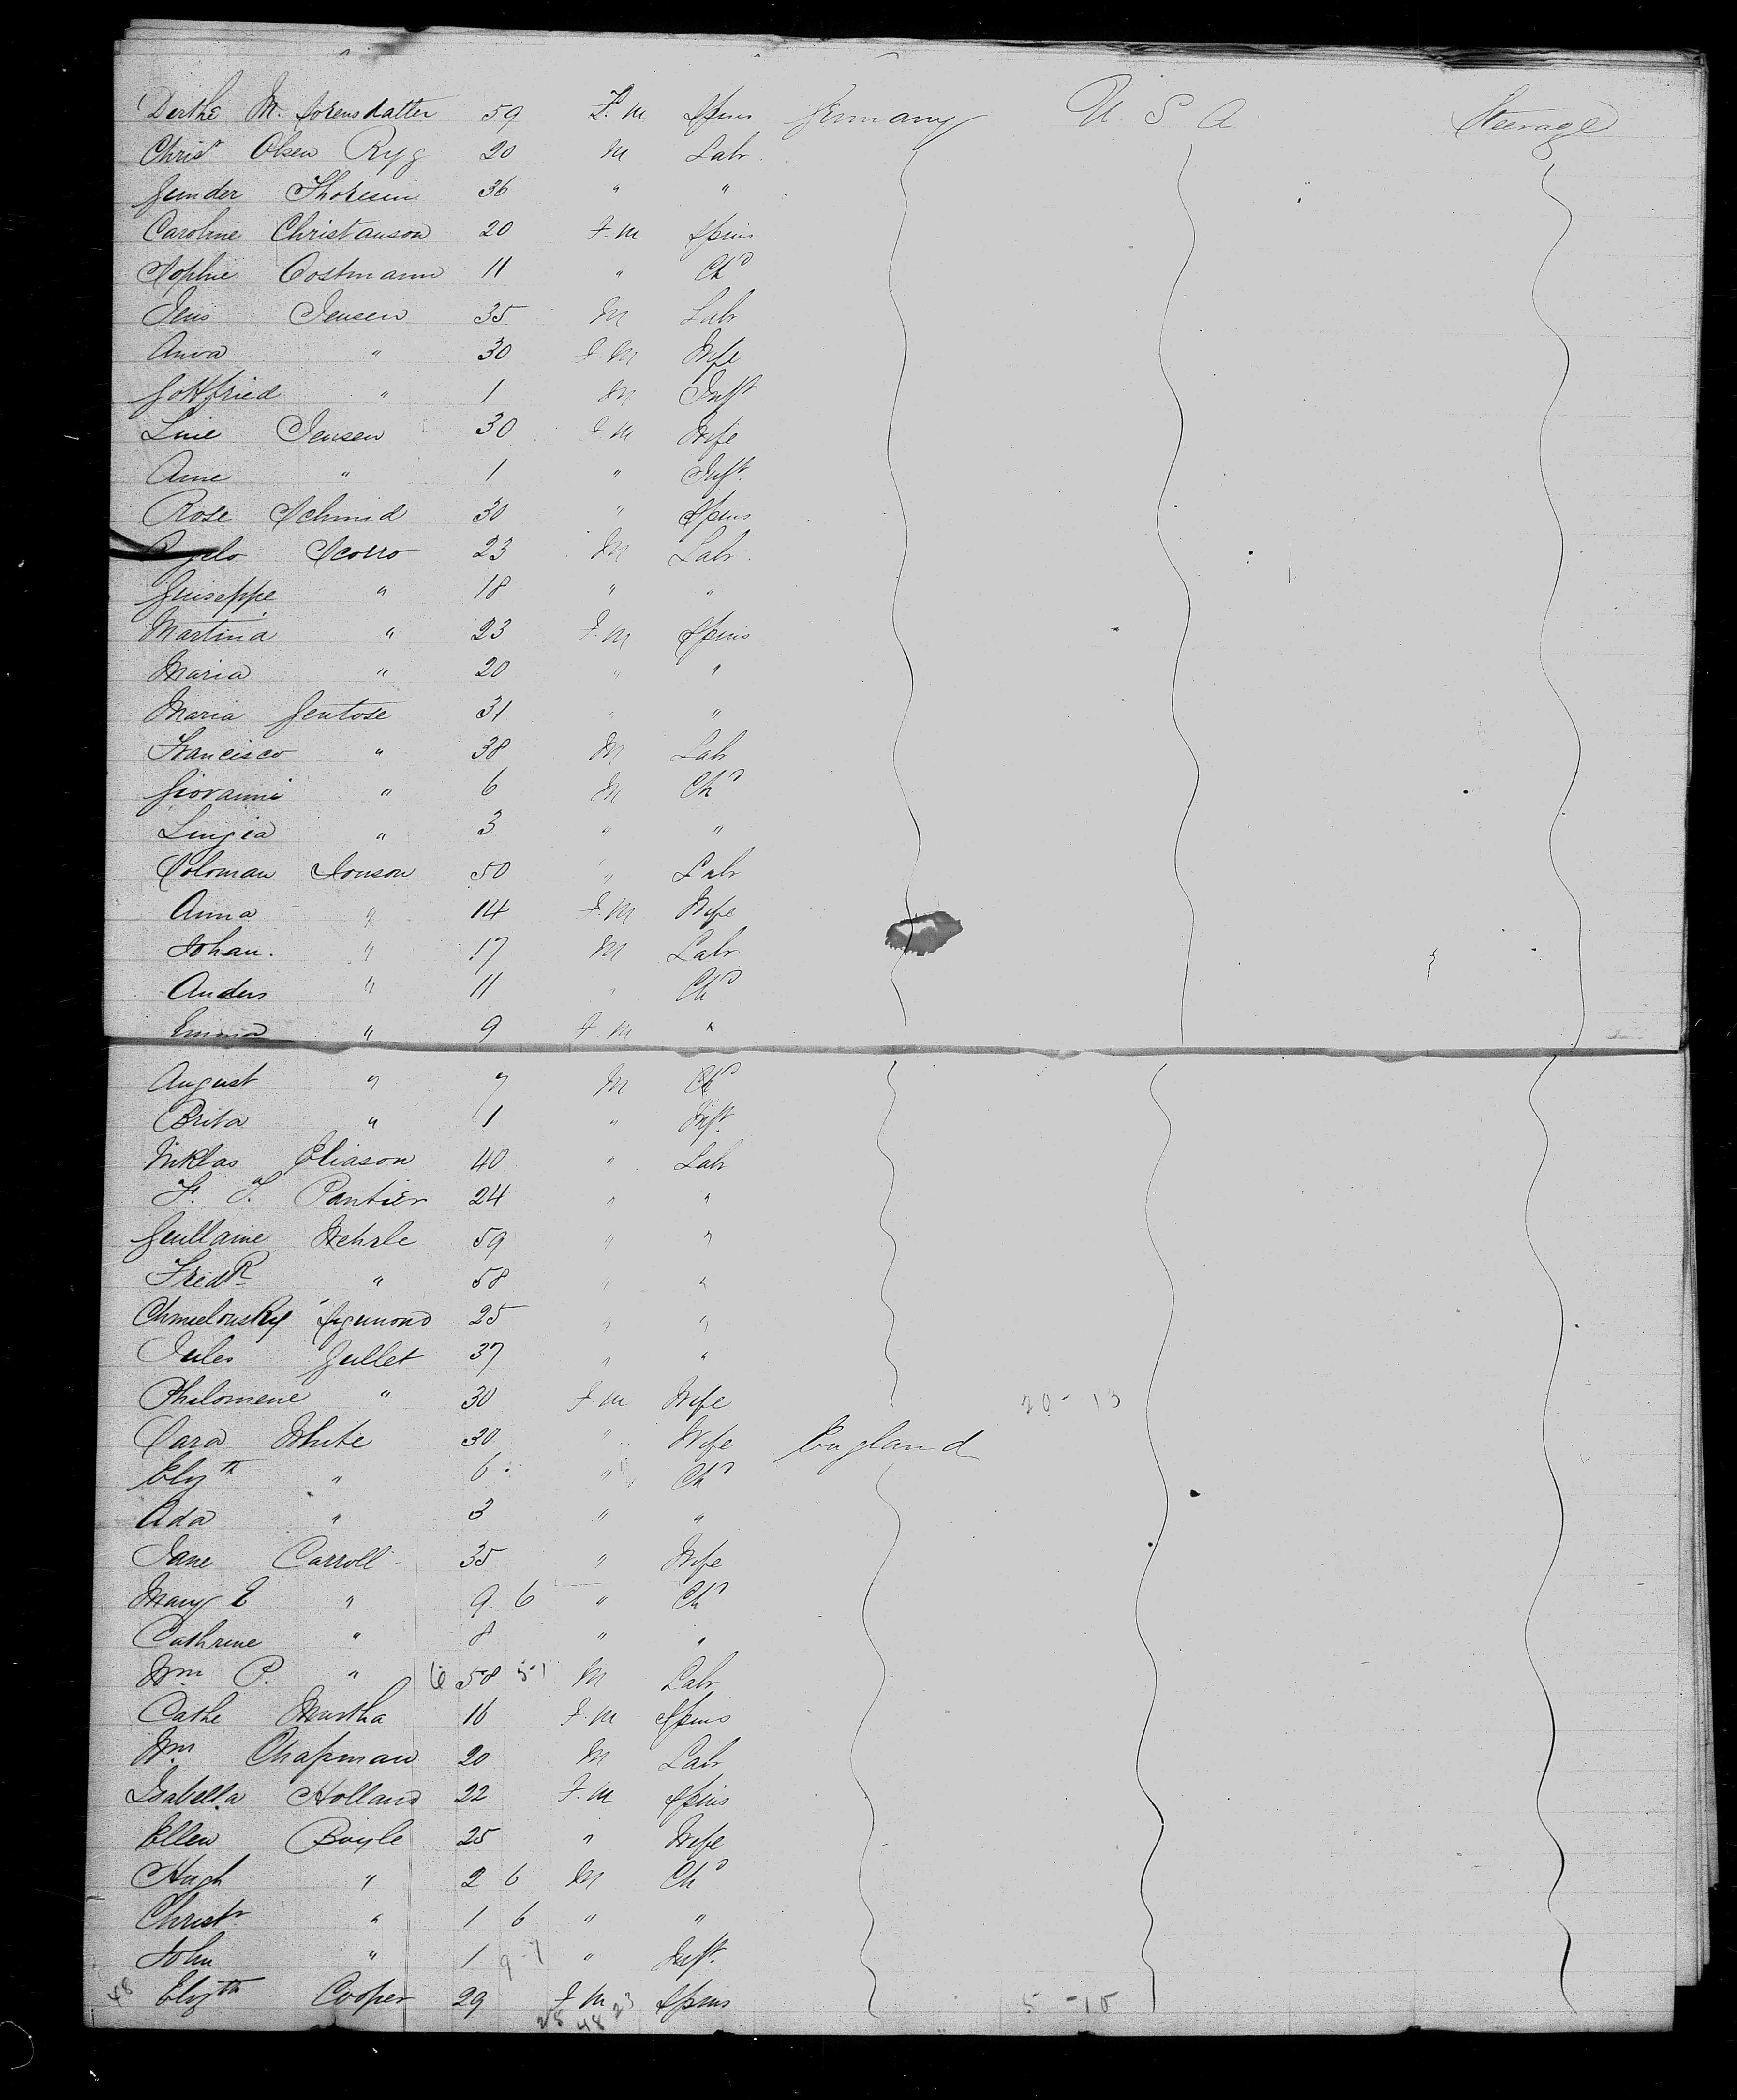 Derthe M. Sorensdatter 59 F.m Spins Germany U S A Steerage
Chrisr Olsen Ryg 20 M Labr
Gunder Thoresen 36 " "
Caroline Christanson 20 F.m Spins
Sophie Oostmann 11 " Chd
Jens Jensen 35 M Labr
Anna " 30 F M Wife
Gottfried " 1 M Inft
Line Jensen 30 F M Wife
Ane " 1 " Inft.
Rose Schmid 30 " Spins
Scorro 23 M Labr
Giuseppe " 18 " "
Martina " 23 F.M Spins
Maria " 20 " "
Maria Gentose 31 " "
Francisco " 38 M Labr
Giovanni " 6 M Chd
Luigia " 3 " "
Soloman Jonson 50 " Labr
Anna " 14 F.M Wife
Johan. " 17 M Labr
Anders " 11 " Chd
Emma " 9 F M "
August " 7 M Chd
Brita " 1 " Inft.
Niklas Eliason 40 " Labr
F. S. Pantier 24 " "
Guillaine Wehrle 59 " "
Fredk " 58 " "
Chmielousky Sigmond 25 " "
Jules Gullet 37 " "
Philomene " 30 F M Wife 20-13
Sara White 30 " Wife England
Elizth " 6 " Chd
Ada " 3 " "
Jane Carroll 35 " Wife
Mary E " 9 6 " Chd
Cathrine " 8 " "
Wm P. " 6 58 51 M Labr
Cathe Murtha 16 F.M Spins
Wm Chapman 20 M Labr
Isabella Holland 22 F.M Spins
Ellen Boyle 25 " Wife
Hugh " 2 6 M Chd
Christr " 1 6 " "
John " 1 9-7 " Inft.
48 Elizth Cooper 29 F M Spins 5-15
25 48 23